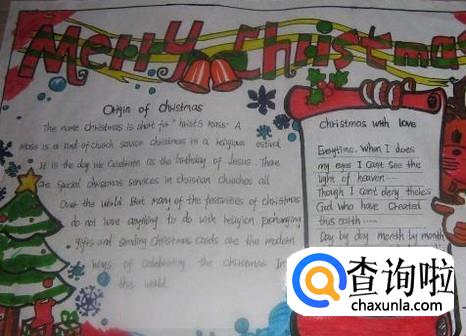 Merry Christmas
Origin of Christmas
The name Christmas is short for " hrist's mass" A
Mass is a kind of church service christmas is a religious estival
It is the day we Celebrate as the birthday of Jesus. There
are special christmas services in christian churches all
Over the world. But many of the festivities of christmas
do not have anything to do with religion. Exchanging
gifts and sending Christmas cards are the modern
ways of celebrating the Christmas In
this world.
Christmas with love
Everytime, When I does
my eyes I Cant See the
light of heaven
Though I can't deny
God who have Created
this earth
Day by day month by month
查询啦
chaxunla.com